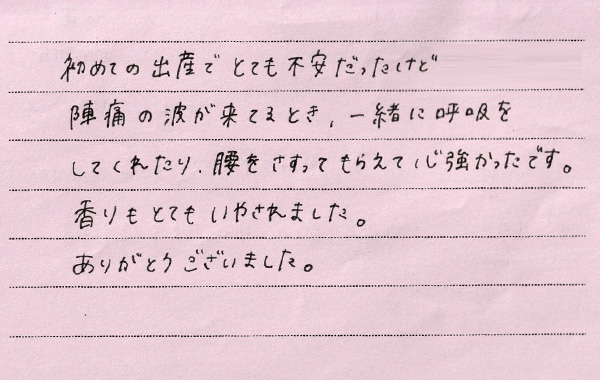 初めての出産でとても不安だったけど
陣痛の波が来てるとき、一緒に呼吸を
してくれたり、腰をさすってもらえて心強かったです。
香りもとてもいやされました。
ありがとうございました。